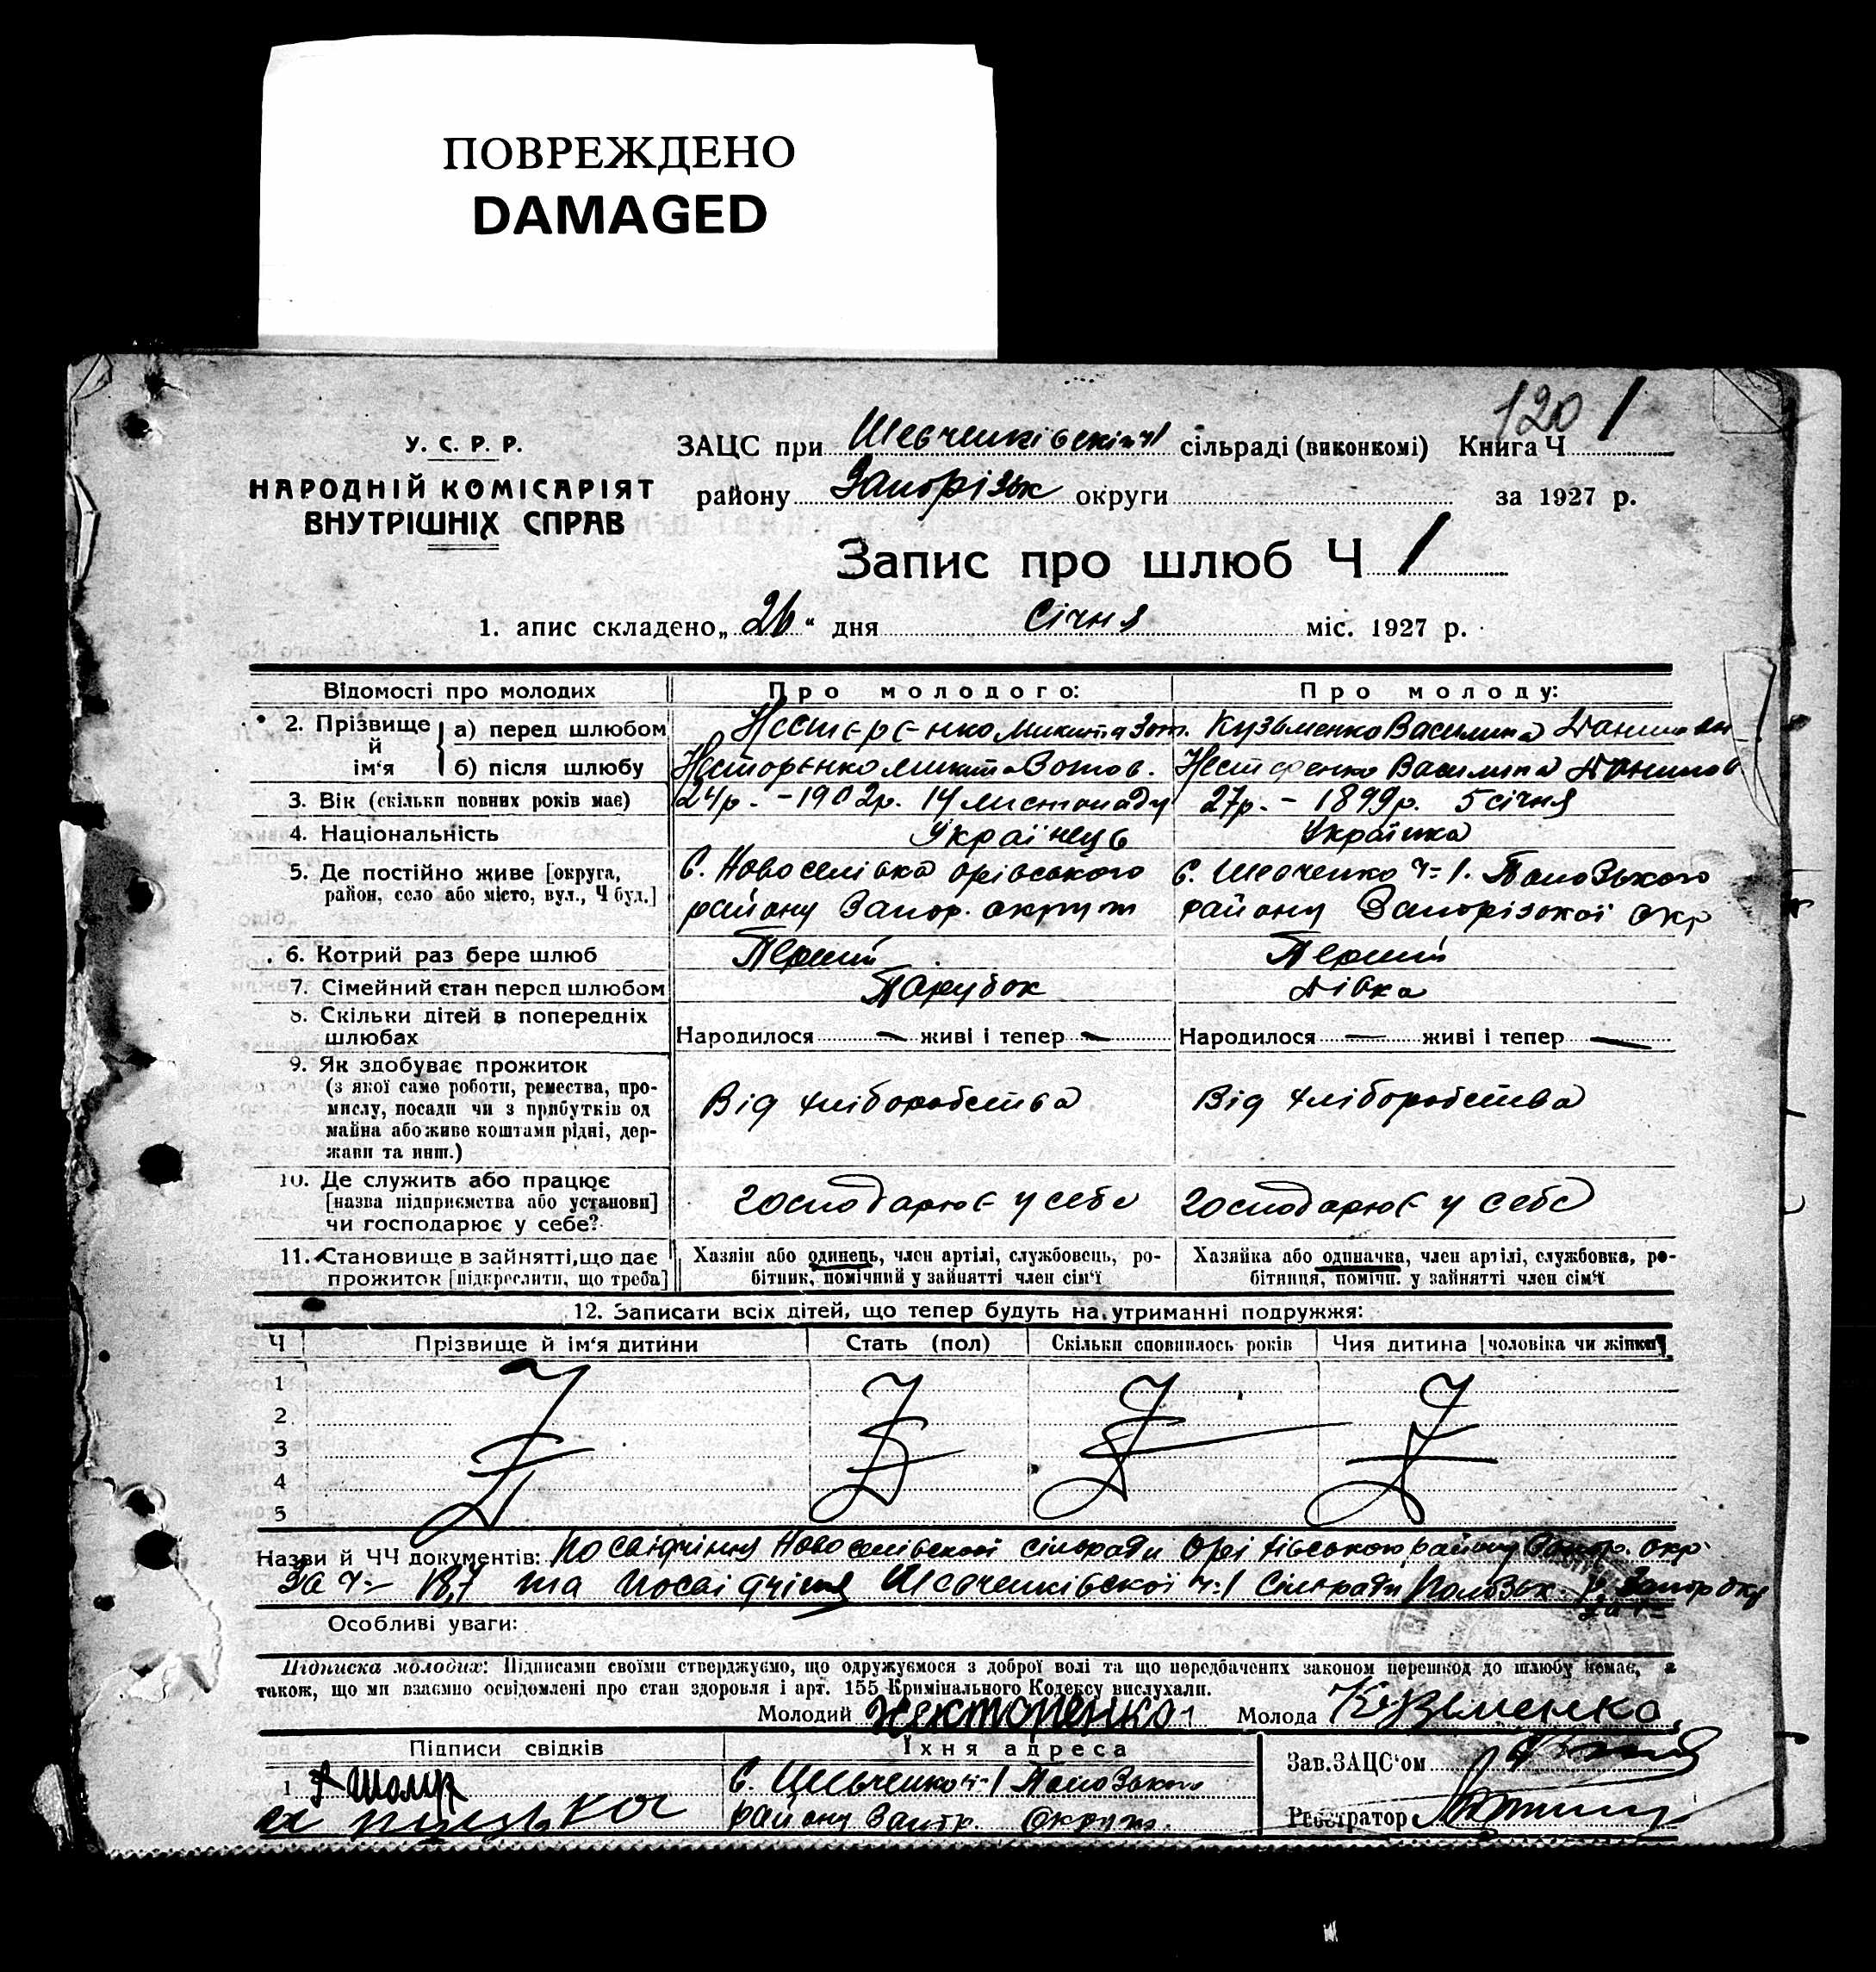 ПОВРЕЖДЕНО
DAMAGED
120 1
У. С. Р. Р.
НАРОДНІЙ КОМІСАРІЯТ
ВНУТРІШНІХ СПРАВ
ЗАЦС при Шевченківській ч1 сільраді (виконкомі) Книга Ч
району Запорізьк округи за 1927 р.
Запис про шлюб Ч 1
1. апис складено „26“ дня Січня міс. 1927 р.
Відомості про молодих Про молодого: Про молоду:
2. Прізвище й ім'я а) перед шлюбом Нестеренко Микита Зот. Кузьменко Василина Данилов
б) після шлюбу Несторенко Микита Зотов. Нестеренко Василина Данилов
3. Вік (скільки повних років має) 24р. – 1902р. 14 листопаду 27р. – 1899р. 5 січня
4. Національність Українець Українка
5. Де постійно живе [округа, район, село або місто, вул., Ч буд.] С. Новоселівка Орівського С. Шевченко ч=1. Пологзького
району Запор. округи району Запорізької окр
6. Котрий раз бере шлюб Перший Перший
7. Сімейний стан перед шлюбом Парубок Дівка
8. Скільки дітей в попередніх шлюбах Народилося — живі і тепер — Народилося — живі і тепер —
9. Як здобуває прожиток
(з якої само роботи, ремества, про-
мислу, посади чи з прибутків од
майна або живе коштами рідні, дер-
жави та инш.) Від хліборобства Від хліборобства
10. Де служить або працює
[назва підприємства або установи]
чи господарює у себе? господарює у себе господарює у себе
11. Становище в зайнятті, що дає
прожиток [підкреслити, що треба] Хазяїн або одинець, член артілі, службовець, ро-
бітник, помічний у зайнятті член сім'ї Хазяйка або одиначка, член артілі, службовка, ро-
бітниця, помічн. у зайнятті член сім'ї
12. Записати всіх дітей, що тепер будуть на утриманні подружжя:
Ч Прізвище й ім'я дитини Стать (пол) Скільки сповнилось років Чия дитина [чоловіка чи жінки]
1
2
3
4
5
Назви й ЧЧ документів: Посвідчіння Новоселівської сільради Оріхівською району Запор. окр
За ч– 187 та посвідчіння Шевченківської ч=1 Сільради Пологзьк. р Запор окр
за ч=
Особливі уваги:
Підписка молодих: Підписами своїми стверджуємо, що одружуємося з доброї волі та що передбачених законом перешкод до шлюбу немає, а
також, що ми взаємно освідомлені про стан здоровля і арт. 155 Кримінального Кодексу вислухали.
Молодий Нестоpенко Молода Кузьменко
Підписи свідків Їхня адреса Зав. ЗАЦС'ом
1 С. Шевченко ч-1 Пологзького
району Запор. Округи. Реєстратор